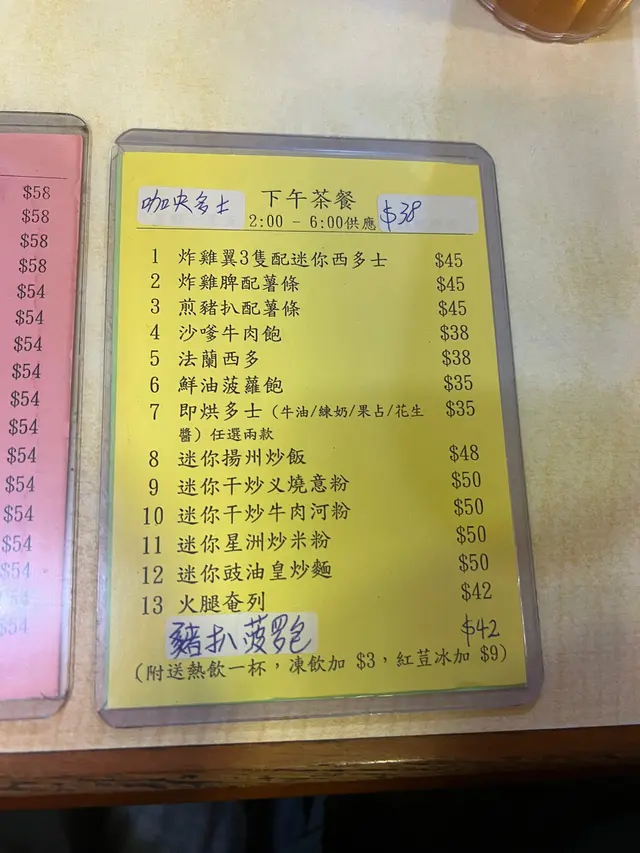 $58
$58
$58
$58
$54
$54
$54
$54
$54
$54
$54
$54
$54
$54
$54
$54
$54
下午茶餐
咖央多士 $38
2:00 - 6:00供應
1 炸雞翼3隻配迷你西多士 $45
2 炸雞脾配薯條 $45
3 煎豬扒配薯條 $45
4 沙嗲牛肉飽 $38
5 法蘭西多 $38
6 鮮油菠蘿飽 $35
7 即烘多士（牛油/練奶/果占/花生 $35
醬）任選兩款
8 迷你揚州炒飯 $48
9 迷你干炒义燒意粉 $50
10 迷你干炒牛肉河粉 $50
11 迷你星洲炒米粉 $50
12 迷你豉油皇炒麵 $50
13 火腿奄列 $42
豬扒菠罗包 $42
（附送熱飲一杯，凍飲加 $3，紅荳冰加 $9）